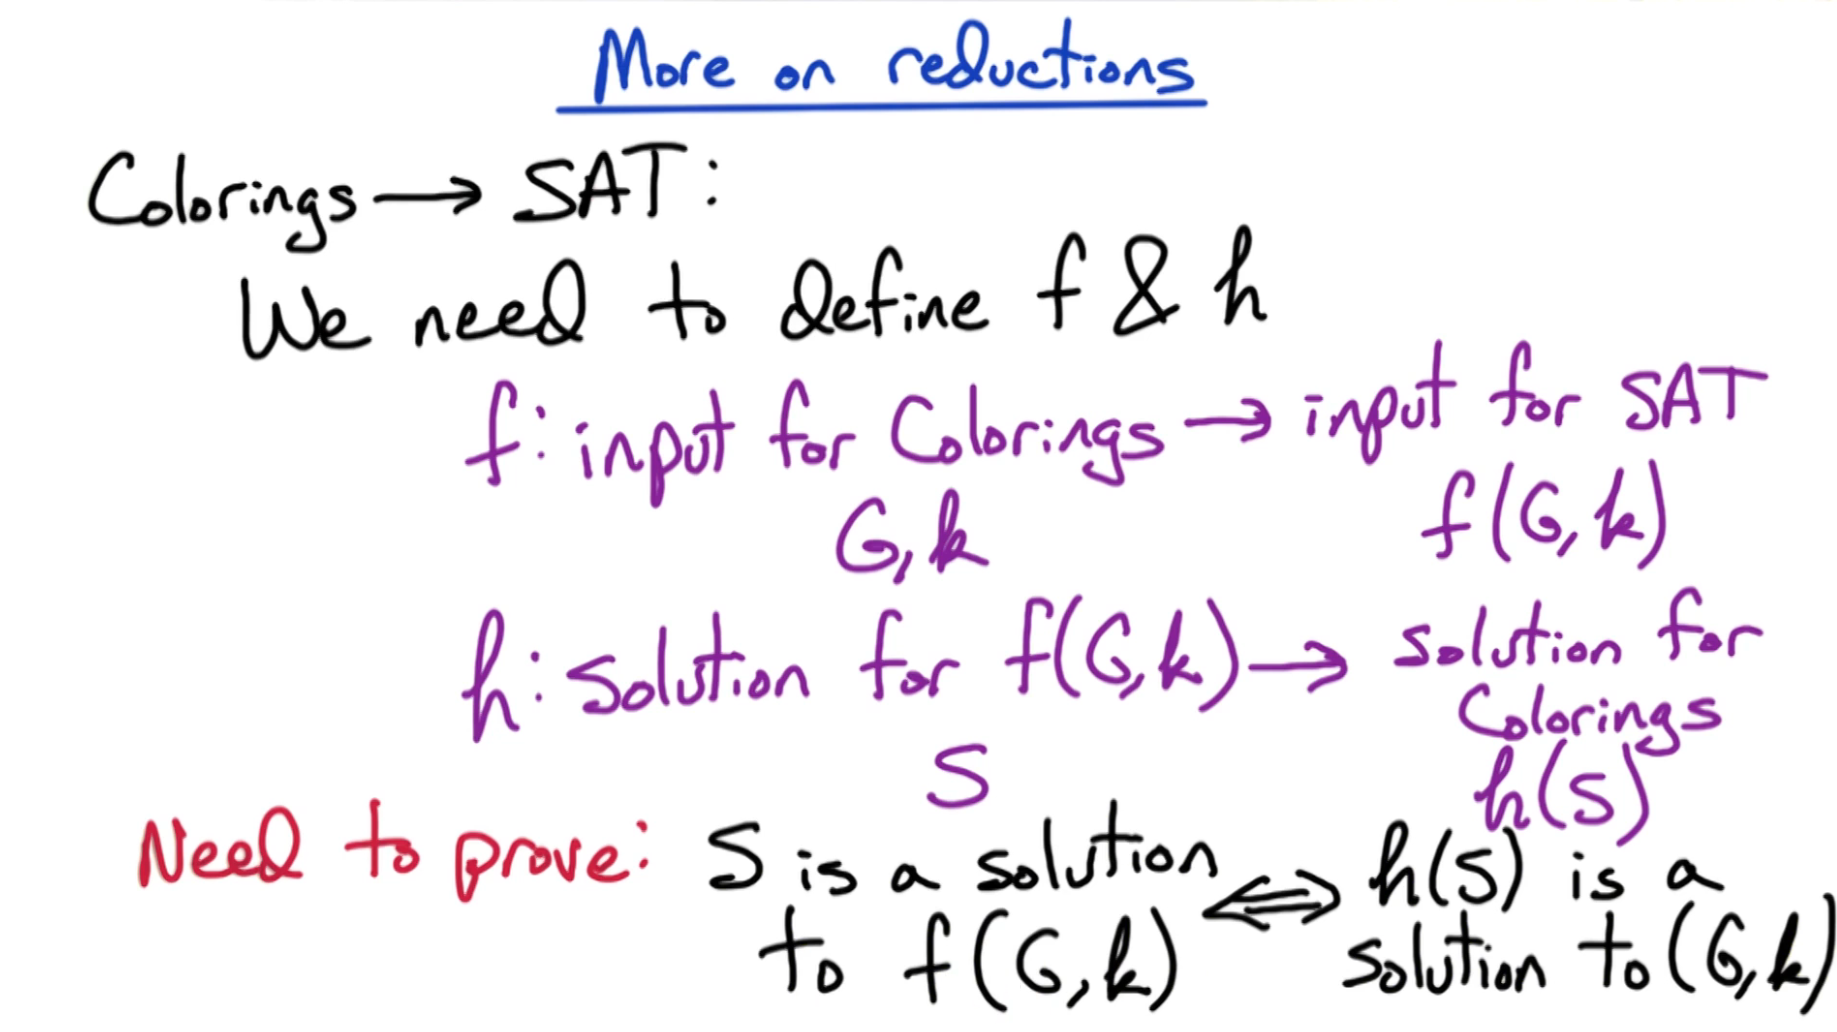 More on reductions
Colorings → SAT:
We need to define f & h
f: input for Colorings → input for SAT
G, k f(G, k)
h: solution for f(G, k) → solution for
Colorings
S h(S)
Need to prove: S is a solution ⟺ h(S) is a
to f(G, k) solution to (G, k)